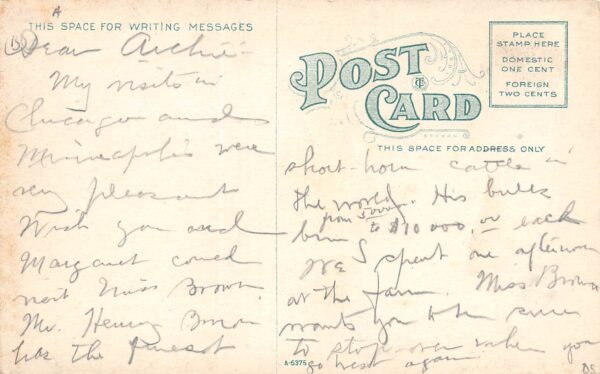 A
THIS SPACE FOR WRITING MESSAGES
Dear Archie:-
My visits in
Chicago and
Minneapolis were
very pleasant
Wish you and
Margaret could
visit Miss Brown.
Mr. Henry Brown
has the finest
POST CARD
PLACE
STAMP HERE
DOMESTIC
ONE CENT
FOREIGN
TWO CENTS
THIS SPACE FOR ADDRESS ONLY
short-horn cattle in
the world. His bulls
from 5000
bring to $10 000.00 each
We spent one afternoon
at the farm. Miss Brown
wants you to be sure
to stop over when you
go west again
A-6375
DS